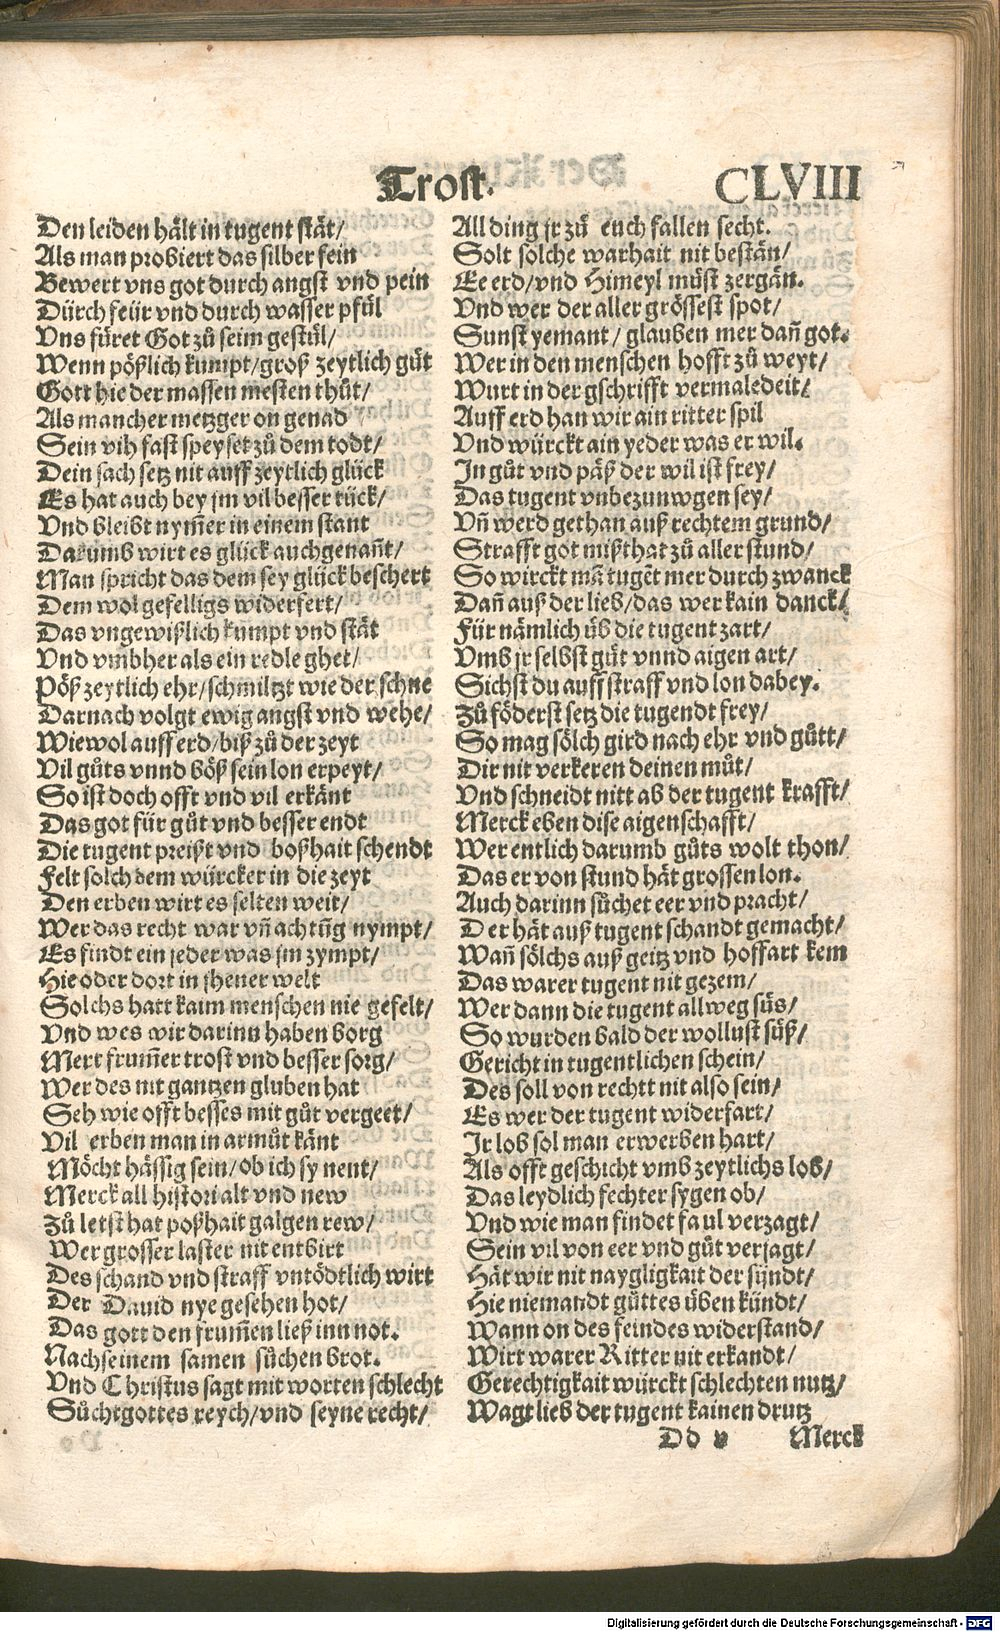 Trost. CLVIII
Den leiden hält in tugent stät/
Als man probiert das silber fein
Bewert vns got durch angst vnd pein
Dürch feür vnd durch wasser pfůl
Vns füret Got zů seim gestůl/
Wenn pößlich kumpt/groß zeytlich gůt
Gott hie der massen mesten thůt/
Als mancher metzger on genad
Sein vih fast speyset zů dem todt/
Dein sach setz nit auff zeytlich glück
Es hat auch bey jm vil besser rück/
Vnd bleibt nym̃er in einem stant
Darumb wirt es glück auchgenañt/
Man spricht das dem sey glück beschert
Dem wol gefelligs widerfert/
Das vngewißlich kumpt vnd stät
Vnd vmbher als ein redle ghet/
Pöß zeytlich ehr/schmiltzt wie der schne
Darnach volgt ewig angst vnd wehe/
Wiewol auff erd/biß zů der zeyt
Vil gůts vnnd böß sein lon erpeyt/
So ist doch offt vnd vil erkänt
Das got für gůt vnd besser endt
Die tugent preißt vnd boßhait schendt
Felt solch dem würcker in die zeyt
Den erben wirt es selten weit/
Wer das recht war vñ achtũg nympt/
Es findt ein jeder was jm zympt/
Hie oder dort in jhener welt
Solchs hatt kaim menschen nie gefelt/
Vnd wes wir darinn haben borg
Merr frum̃er trost vnd besser sorg/
Wer des nit gantzen gluben hat
Seh wie offt besses mit gůt vergeet/
Vil erben man in armůt känt
Möcht hässig sein/ob ich sy nent/
Merck all histori alt vnd new
Zů letst hat poßhait galgen rew/
Wer grosser laster nit entbirt
Des schand vnd straff vntödtlich wirt
Der Dauid nye gesehen hot/
Das gott den frum̃en ließ inn not.
Nachseinem samen sůchen brot.
Vnd Christus sagt mit worten schlecht
Sůchtgottes reych/vnd seyne recht/
All ding jr zů euch fallen secht.
Solt solche warhait nit bestän/
Ee erd/vnd Himeyl můst zergän.
Vnd wer der aller grössest spot/
Sunst yemant/ glauben mer dañ got.
Wer in den menschen hofft zů weyt/
Wurt in der gschrifft vermaledeit/
Auff erd han wir ain ritter spil
Vnd würckt ain yeder was er wil.
In gůt vnd päß der wil ist frey/
Das tugent vnbezunwgen sey/
Vñ werd gethan auß rechtem grund/
Strafft got mißthat zů aller stund/
So wirckt mã tugẽt mer durch zwanck
Dañ auß der lieb/das wer kain danck/
Für nämlich üb die tugent zart/
Vmb jr selbst gůt vnnd aigen art/
Sichst du auff straff vnd lon dabey.
Zů föderst setz die tugendt frey/
So mag sölch gird nach ehr vnd gůtt/
Dir nit verkeren deinen můt/
Vnd schneidt nitt ab der tugent krafft/
Merck eben dise aigenschafft/
Wer entlich darumb gůts wolt thon/
Das er von stund hät grossen lon.
Auch darinn sůchet eer vnd pracht/
Der hät auß tugent schandt gemacht/
Wañ sölchs auß geitz vnd hoffart kem
Das warer tugent nit gezem/
Wer dann die tugent allweg süs/
So wurden bald der wollust süß/
Gericht in tugentlichen schein/
Des soll von rechtt nit also sein/
Es wer der tugent widerfart/
Jr lob sol man erwerben hart/
Als offt geschicht vmb zeytlichs lob/
Das leydlich fechter sygen ob/
Vnd wie man findet faul verzagt/
Sein vil von eer vnd gůt verjagt/
Hät wir nit naygligkait der sündt/
Hie niemandt gůttes üben kündt/
Wann on des feindes widerstand/
Wirt warer Ritter nit erkandt/
Gerechtigkait würckt schlechten nutz/
Wagt lieb der tugent kainen drutz
Dd v Merck
Digitalisierung gefördert durch die Deutsche Forschungsgemeinschaft - DFG